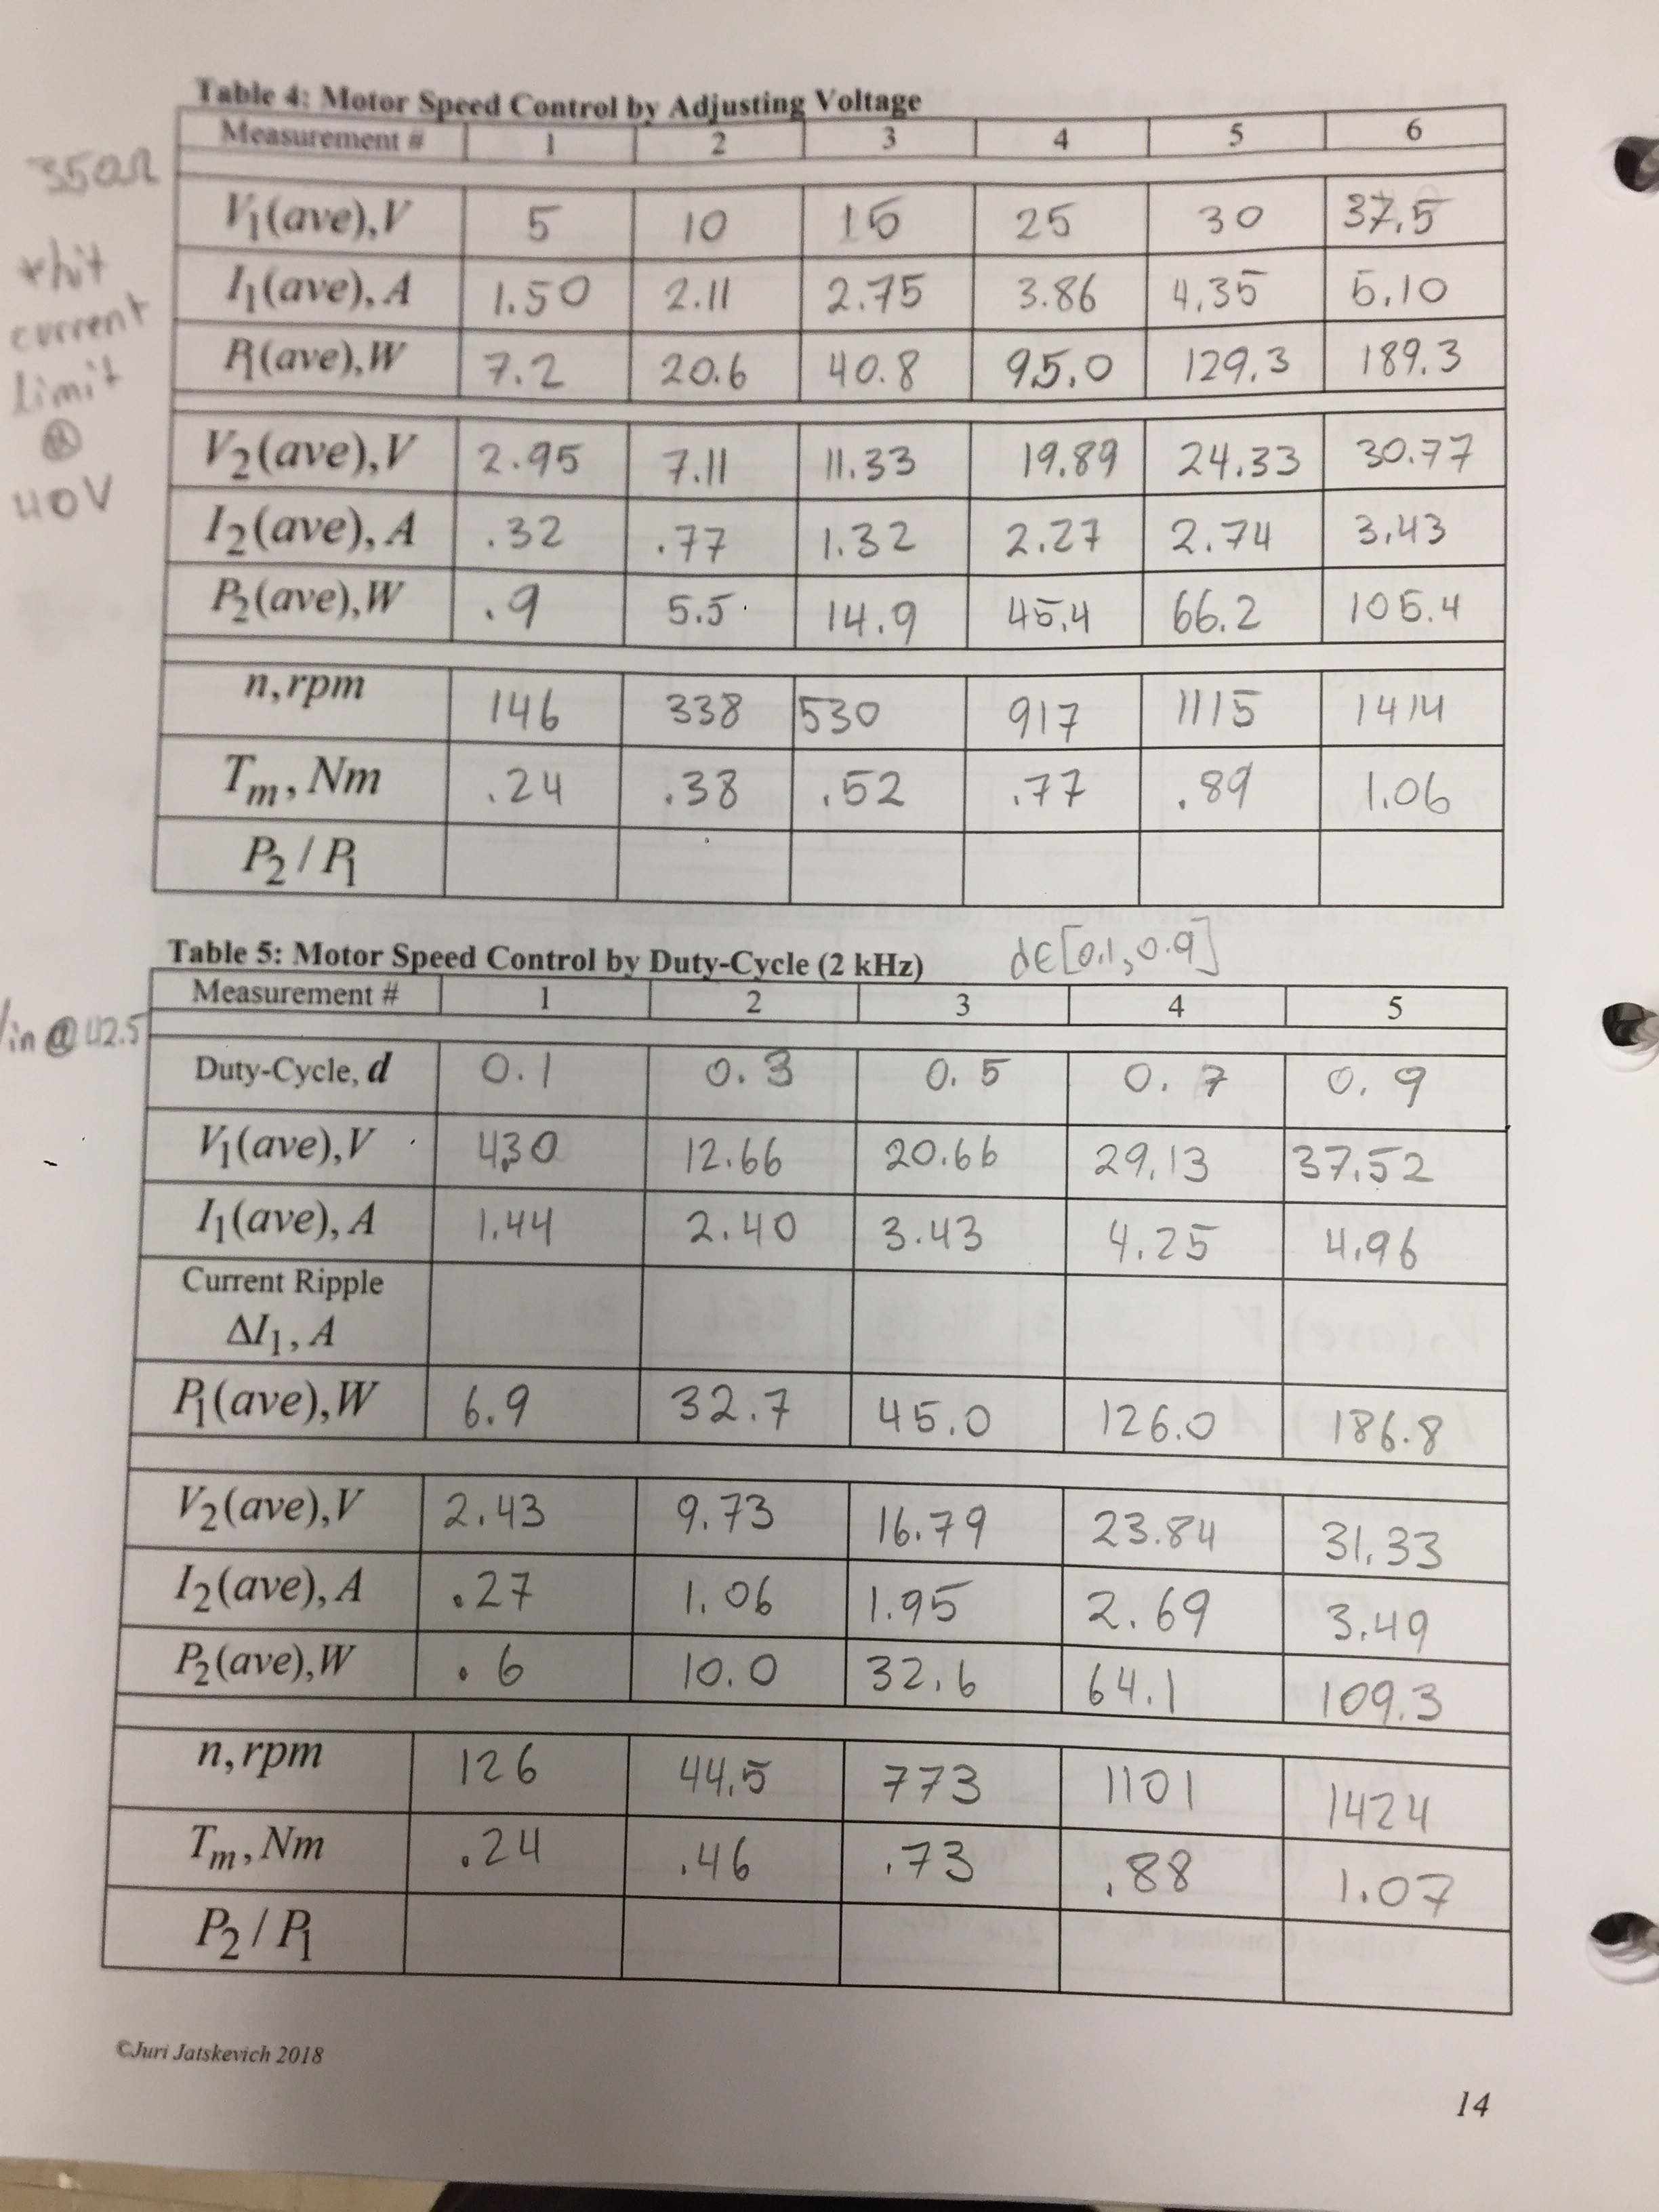 Table 4: Motor Speed Control by Adjusting Voltage
Measurement # 1 2 3 4 5 6
350Ω
V1(ave),V 5 10 15 25 30 37.5
*hit current limit @ 40V
I1(ave),A 1.50 2.11 2.75 3.86 4.35 5.10
P1(ave),W 7.2 20.6 40.8 95.0 129.3 189.3
V2(ave),V 2.95 7.11 11.33 19.89 24.33 30.77
I2(ave),A .32 .77 1.32 2.27 2.74 3.43
P2(ave),W .9 5.5 14.9 45.4 66.2 105.4
n,rpm 146 338 530 917 1115 1414
Tm,Nm .24 .38 .52 .77 .89 1.06
P2/P1
Table 5: Motor Speed Control by Duty-Cycle (2 kHz) d∈[0.1,0.9]
Measurement # 1 2 3 4 5
in @ 42.5
Duty-Cycle, d 0.1 0.3 0.5 0.7 0.9
V1(ave),V 4.30 12.66 20.66 29.13 37.52
I1(ave),A 1.44 2.40 3.43 4.25 4.96
Current Ripple
ΔI1,A
P1(ave),W 6.9 32.7 45.0 126.0 186.8
V2(ave),V 2.43 9.73 16.79 23.84 31.33
I2(ave),A .27 1.06 1.95 2.69 3.49
P2(ave),W .6 10.0 32.6 64.1 109.3
n,rpm 126 44.5 773 1101 1424
Tm,Nm .24 .46 .73 .88 1.07
P2/P1
©Juri Jatskevich 2018
14